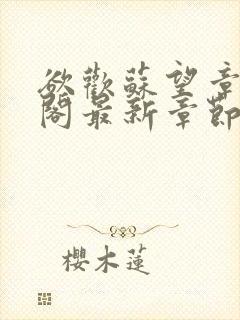 欲歡蘇望章
閣最新章節
櫻木蓮